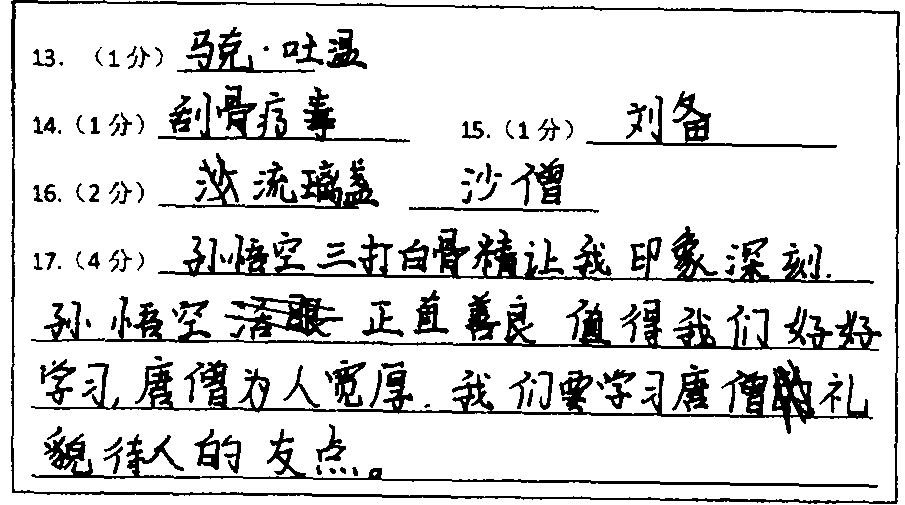 13. （1分）马克·吐温
14.（1分）刮骨疗毒 15.（1分）刘备
16.（2分）流璃盏 沙僧
17.（4分）孙悟空三打白骨精让我印象深刻.
孙悟空 正直善良 值得我们好好
学习,唐僧为人宽厚.我们要学习唐僧的礼
貌待人的友点。